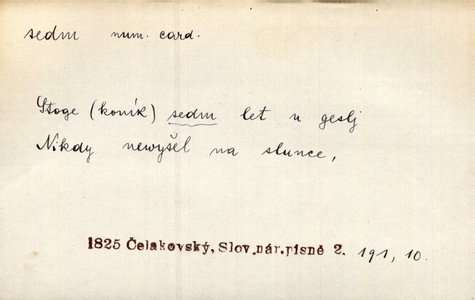 sedm num. card.
Stoge (koník) sedm let u geslj
Nikdy newyšel na slunce,
1825 Čelakovský, Slov.nár.písně 2. 191, 10.